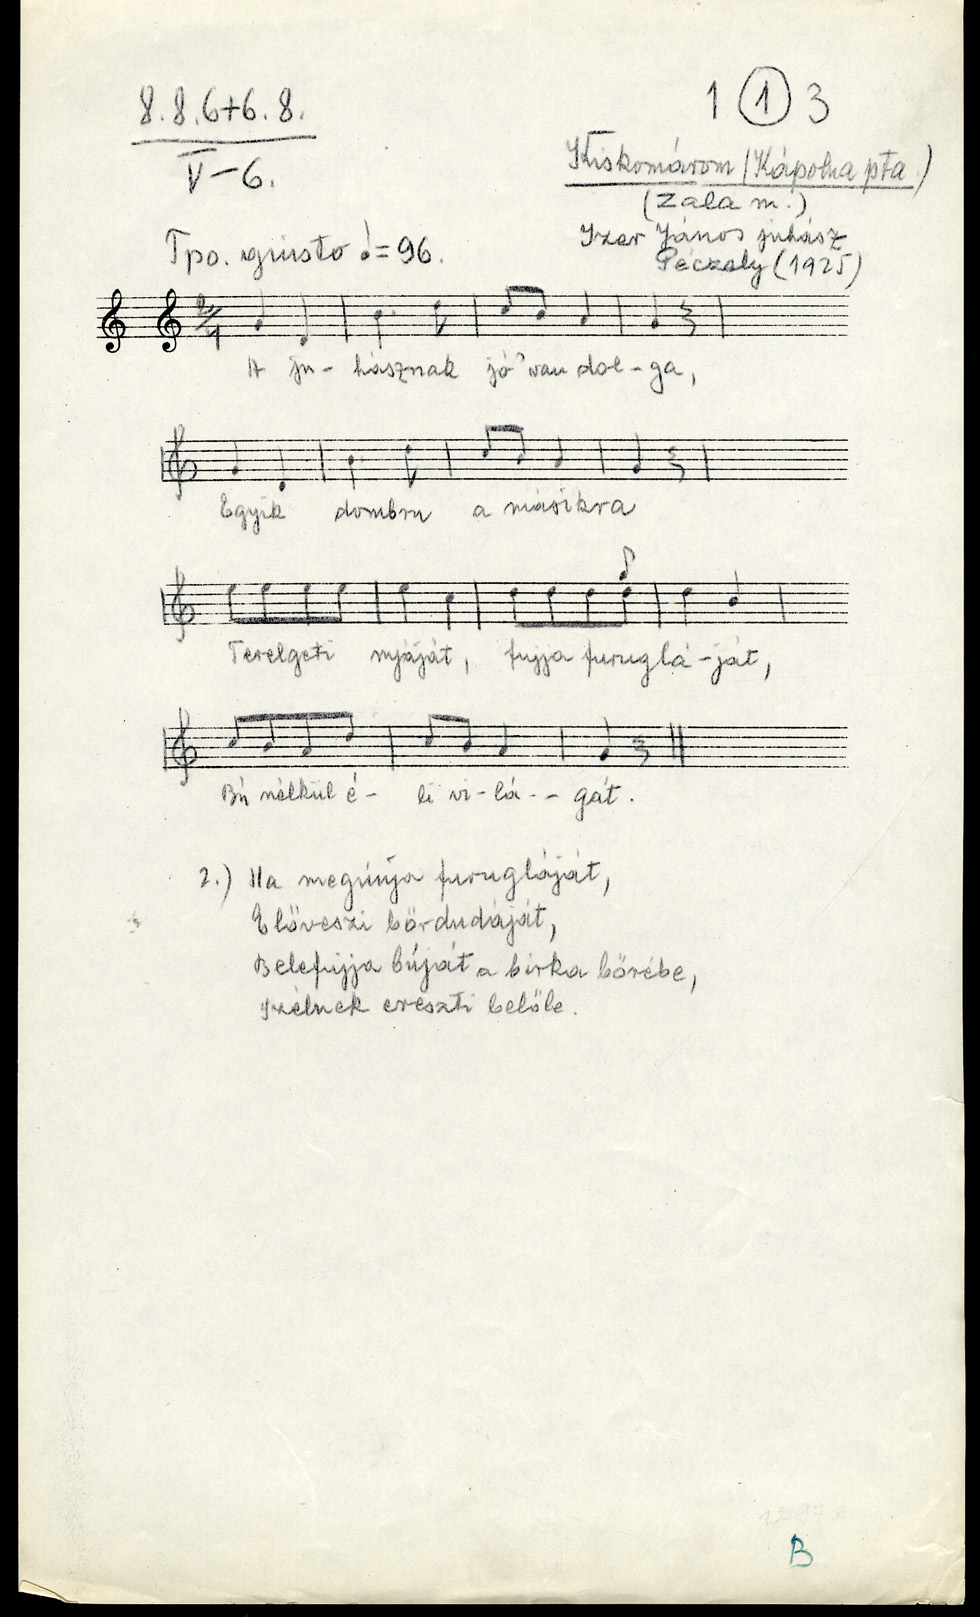 8.8.6+6.8.
V-6.
1 (1) 3
Kiskomárom (Kápolna pta.)
(Zala m.)
János juhász
Péczely (1925)
Tpo. giusto ♩=96.
2/4
A ju-hásznak jó' van dol-ga,
Egyik dombru a másikra
Terelgeti nyáját, fujja furuglá-ját,
Bú nélkül é- li vi-lá-- gát.
2.) Ha megúnja furugláját,
Előveszi bőrdudáját,
Belefujja búját a birka bőrébe,
Szélnek ereszti belőle.
B